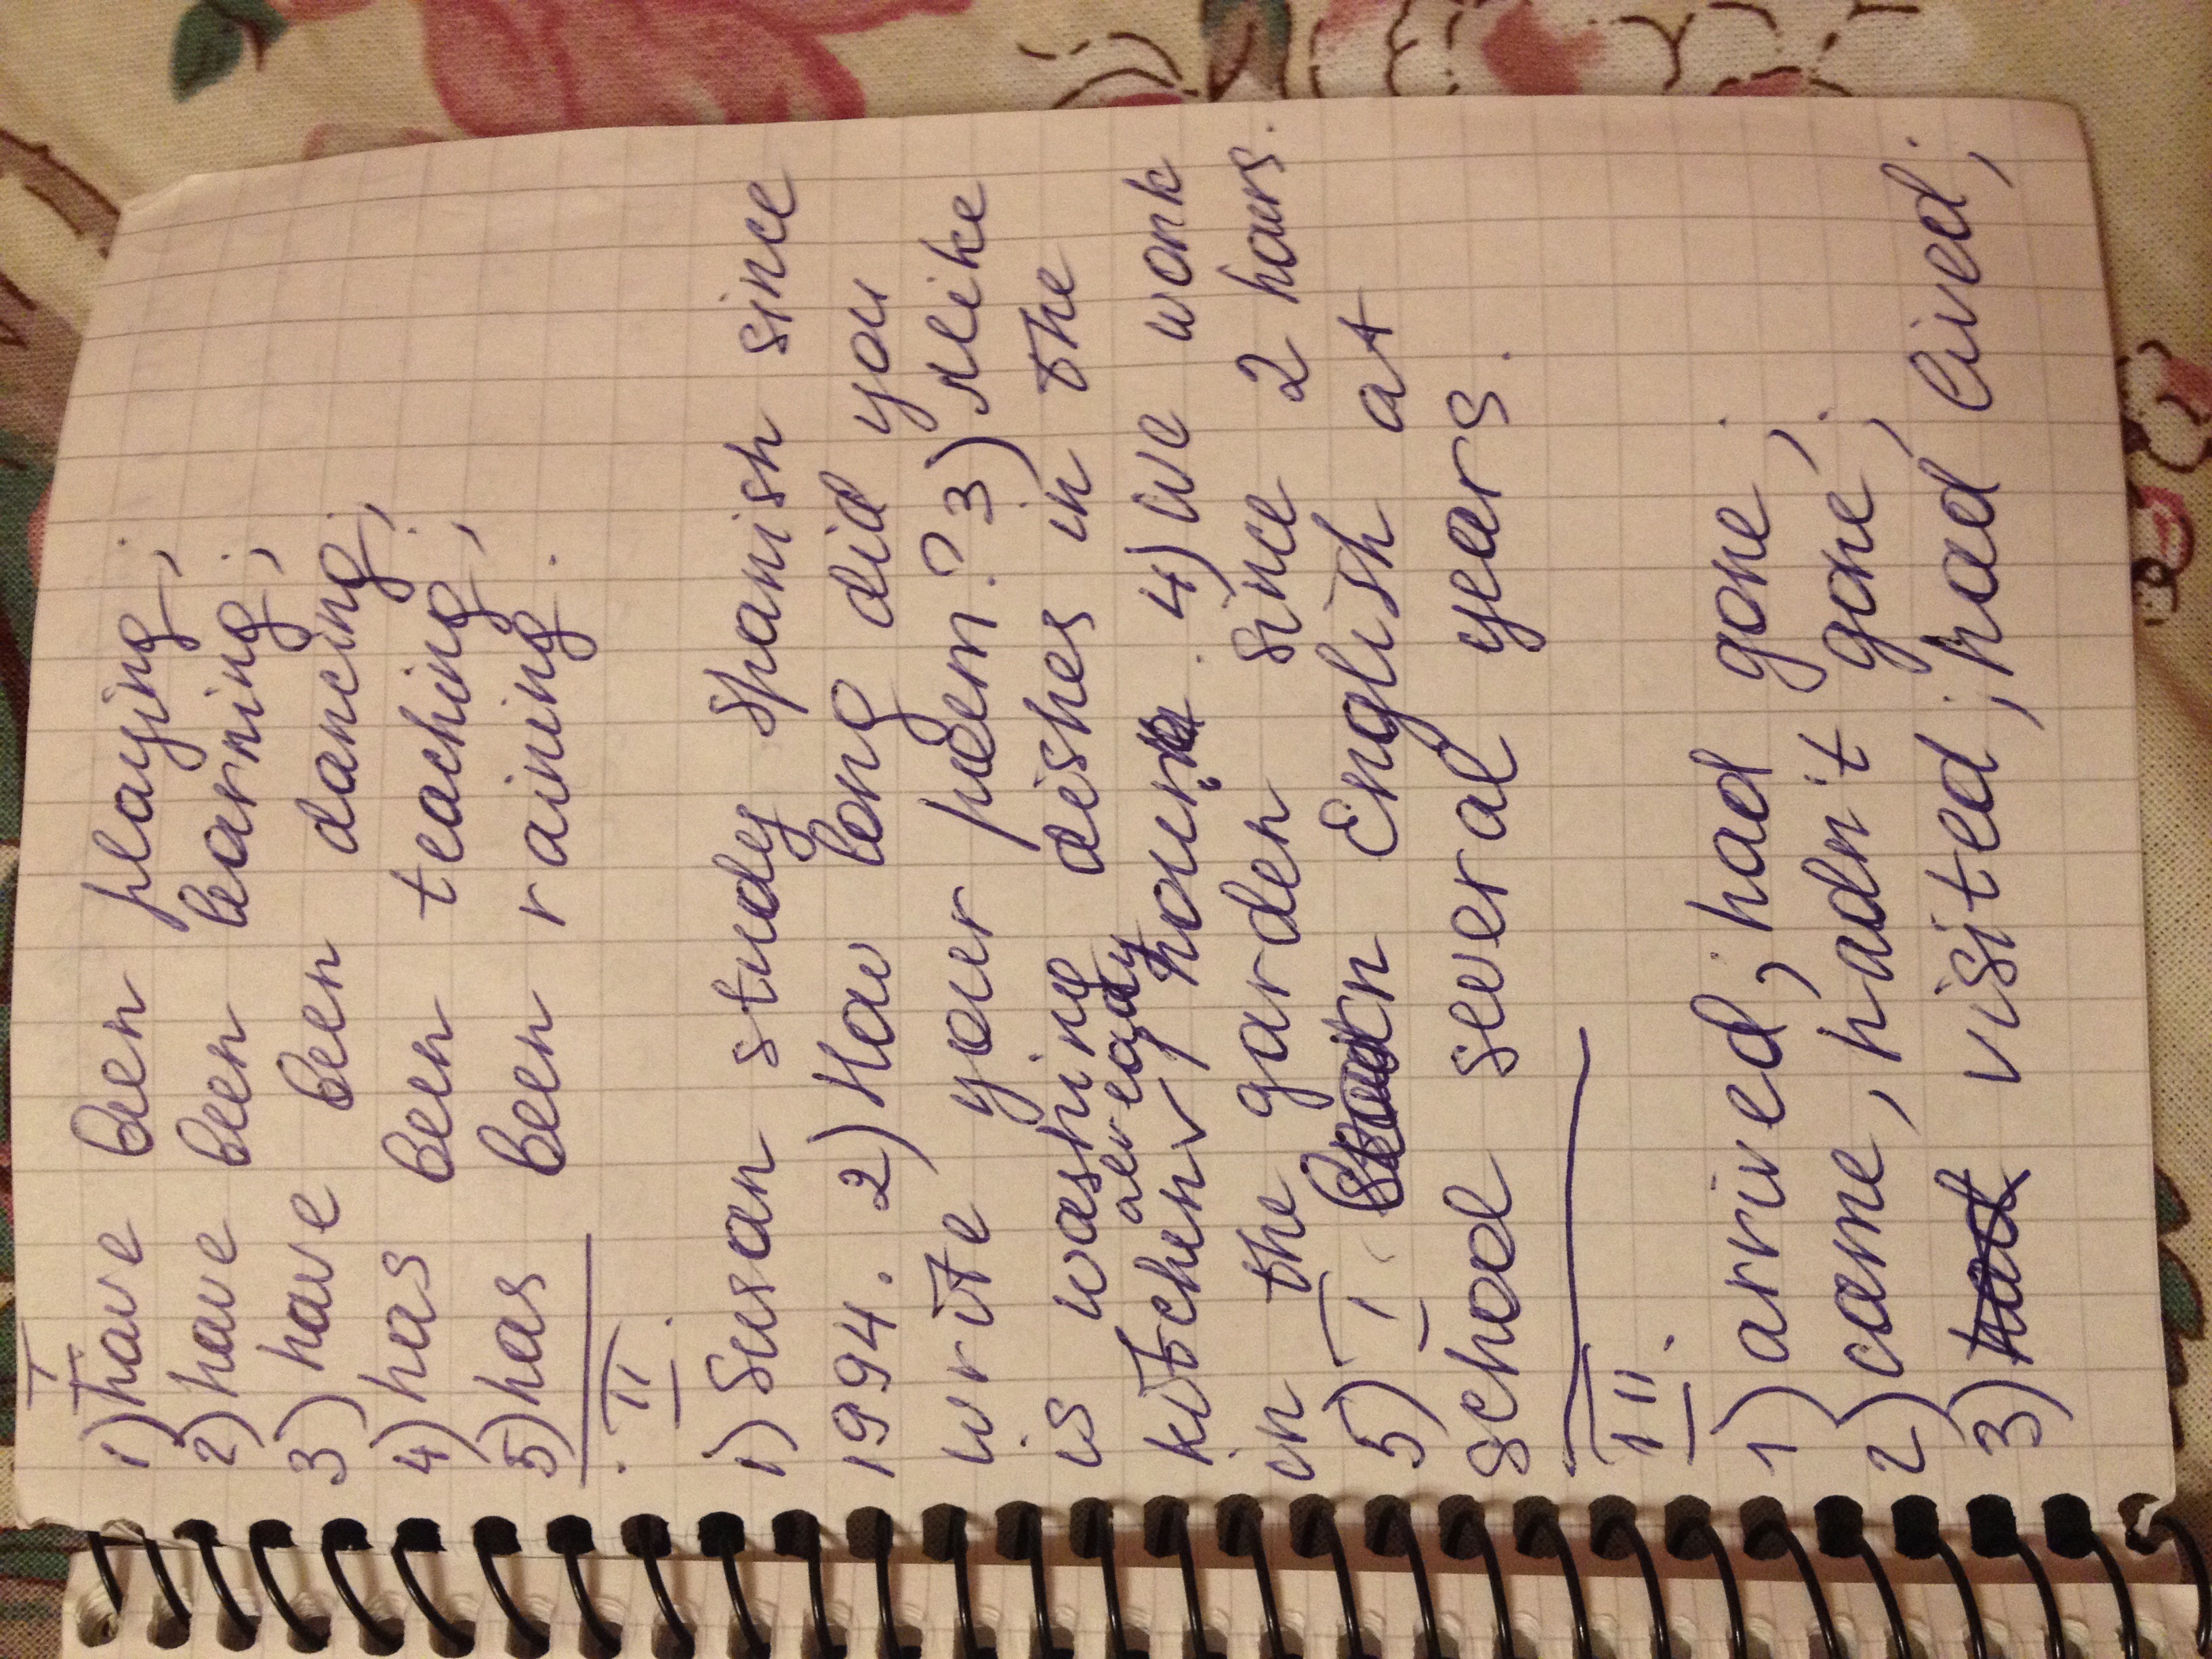 I.
1) have been playing;
2) have been learning;
3) have been dancing;
4) has been teaching;
5) has been raining.
II.
1) Susan study Spanish since
1994. 2) How long did you
write your poem? 3) Mike
is washing dishes in the
already
kitchen hour. 4) We work
in the garden since 2 hours.
5) I learn English at
school several years.
III.
1) arrived; had gone;
2) came, hadn't gone;
3) visited; had lived;